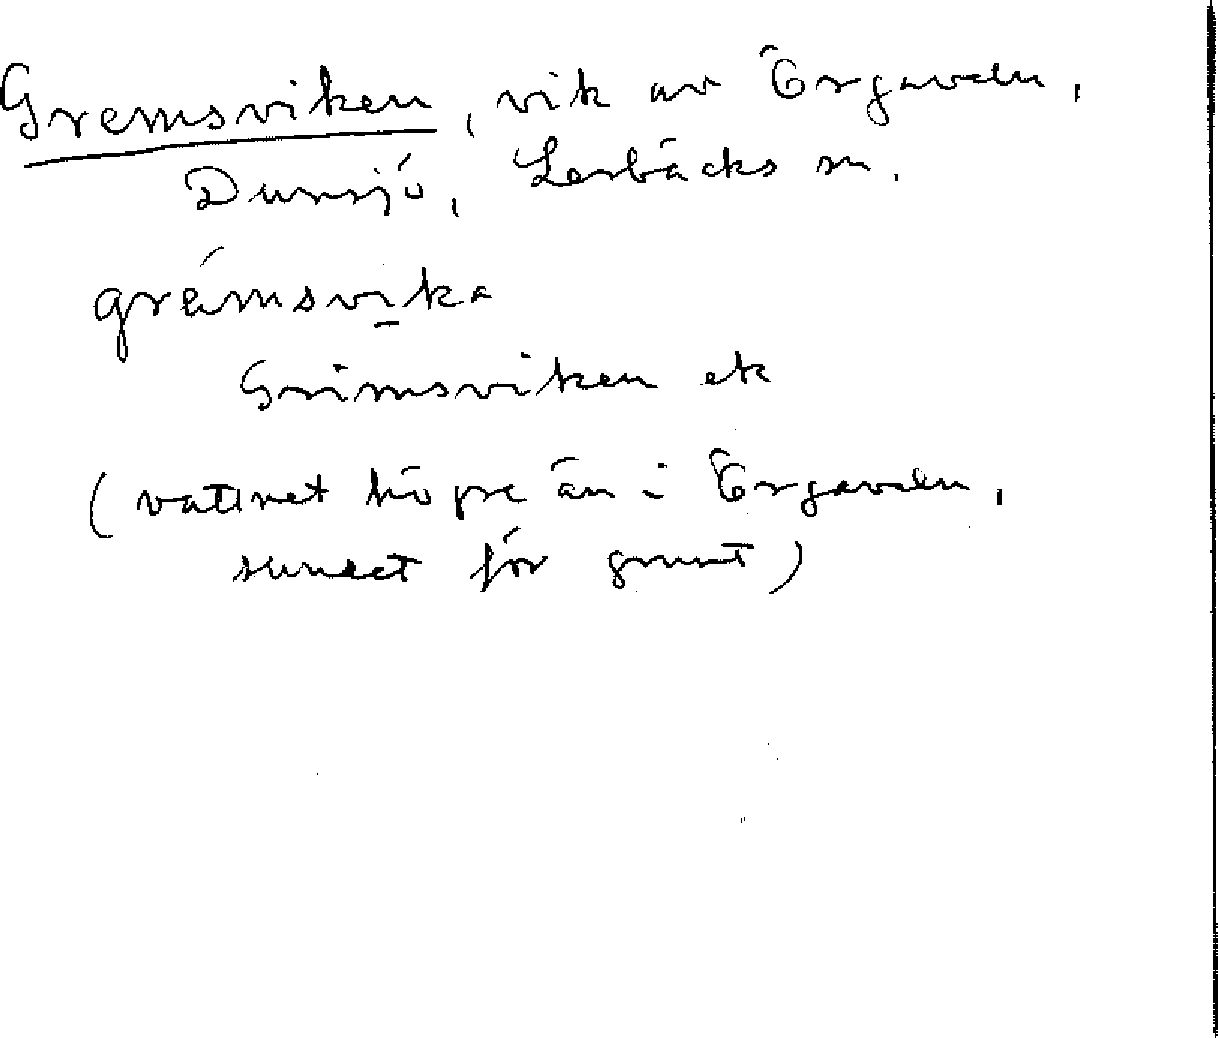 Gremsviken, vik av Örgaveln,
Dunsjö, Lerbäcks sn.
grémsvika
Grimsviken ek
(vattnet högre än i Örgaveln,
sundet för grunt)